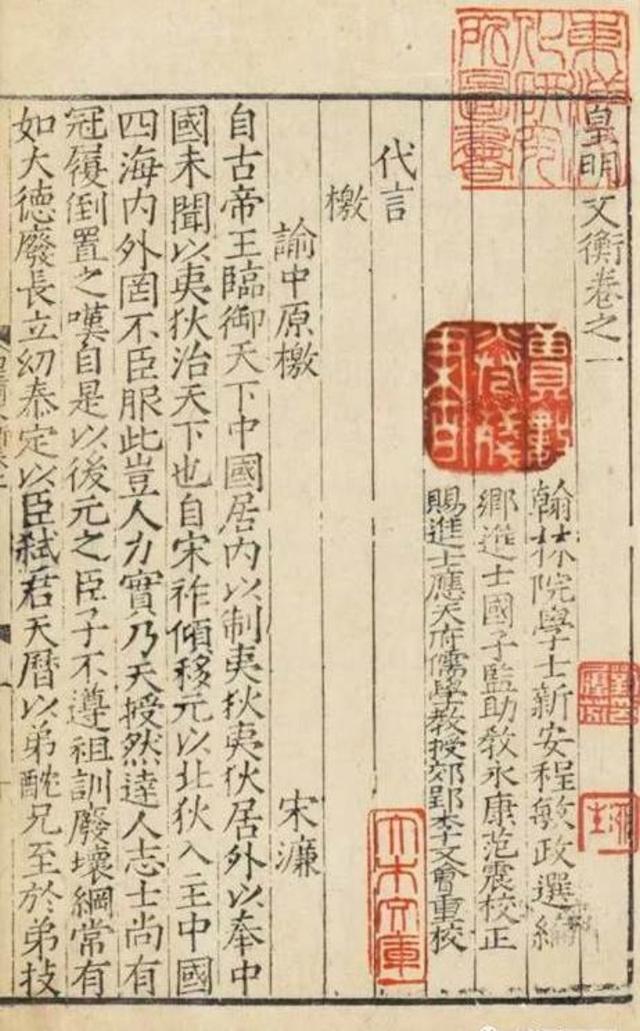 東洋文化研究所圖書
皇明文衡卷之一
翰林院學士新安程敏政選編
鄉進士國子監助教永康范震校正
賜進士應天府儒學教授郊郢李文會重校
大木文庫
代言
檄
諭中原檄 宋濂
自古帝王臨御天下中國居內以制夷狄夷狄居外以奉中
國未聞以夷狄治天下也自宋祚傾移元以北狄入主中國
四海內外罔不臣服此豈人力實乃天授然達人志士尚有
冠履倒置之嘆自是以後元之臣子不遵祖訓廢壞綱常有
如大德廢長立幼泰定以臣弒君天曆以弟酖兄至於弟技